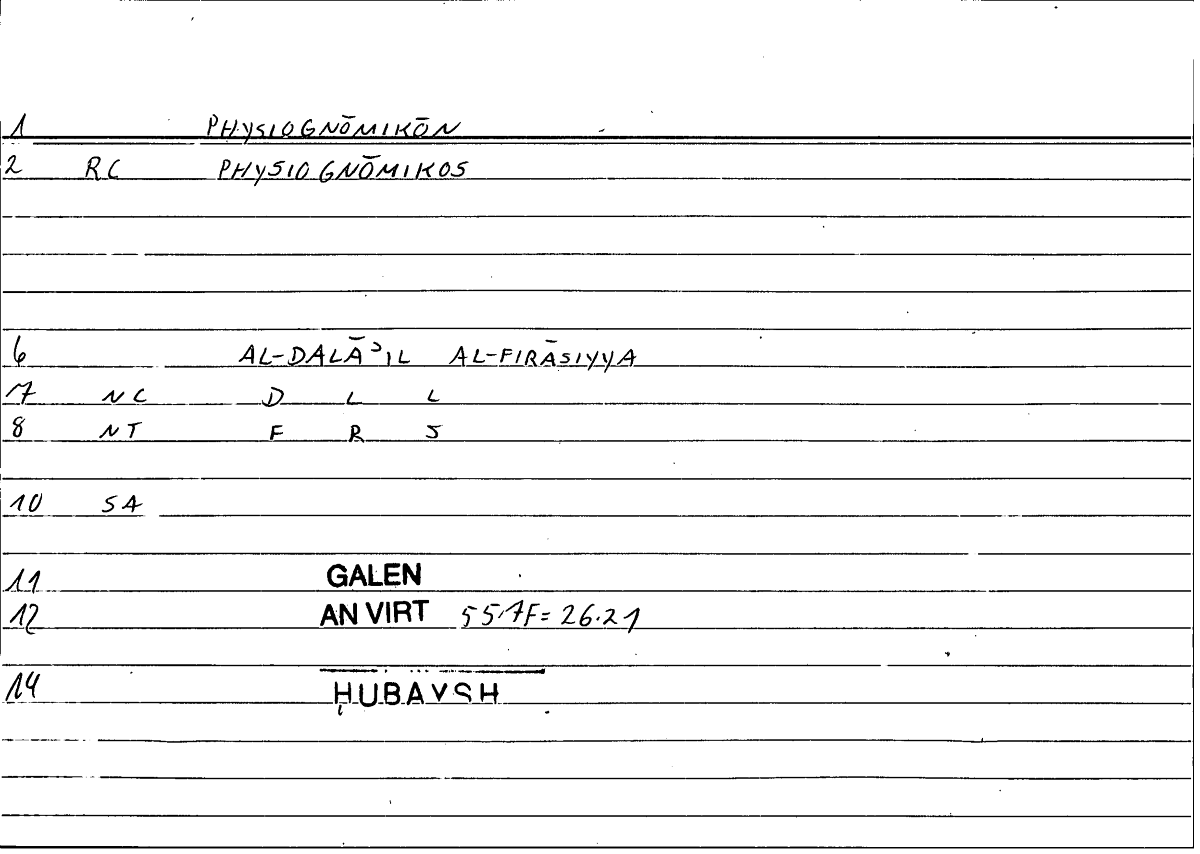 1 PHYSIOGNŌMIKŌN
2 RC PHYSIOGNŌMIKOS
6 AL-DALĀʾIL AL-FIRĀSIYYA
7 NC D L L
8 NT F R S
10 SA
11 GALEN
12 AN VIRT 55,7F= 26.21
14 ḤUBAYSH